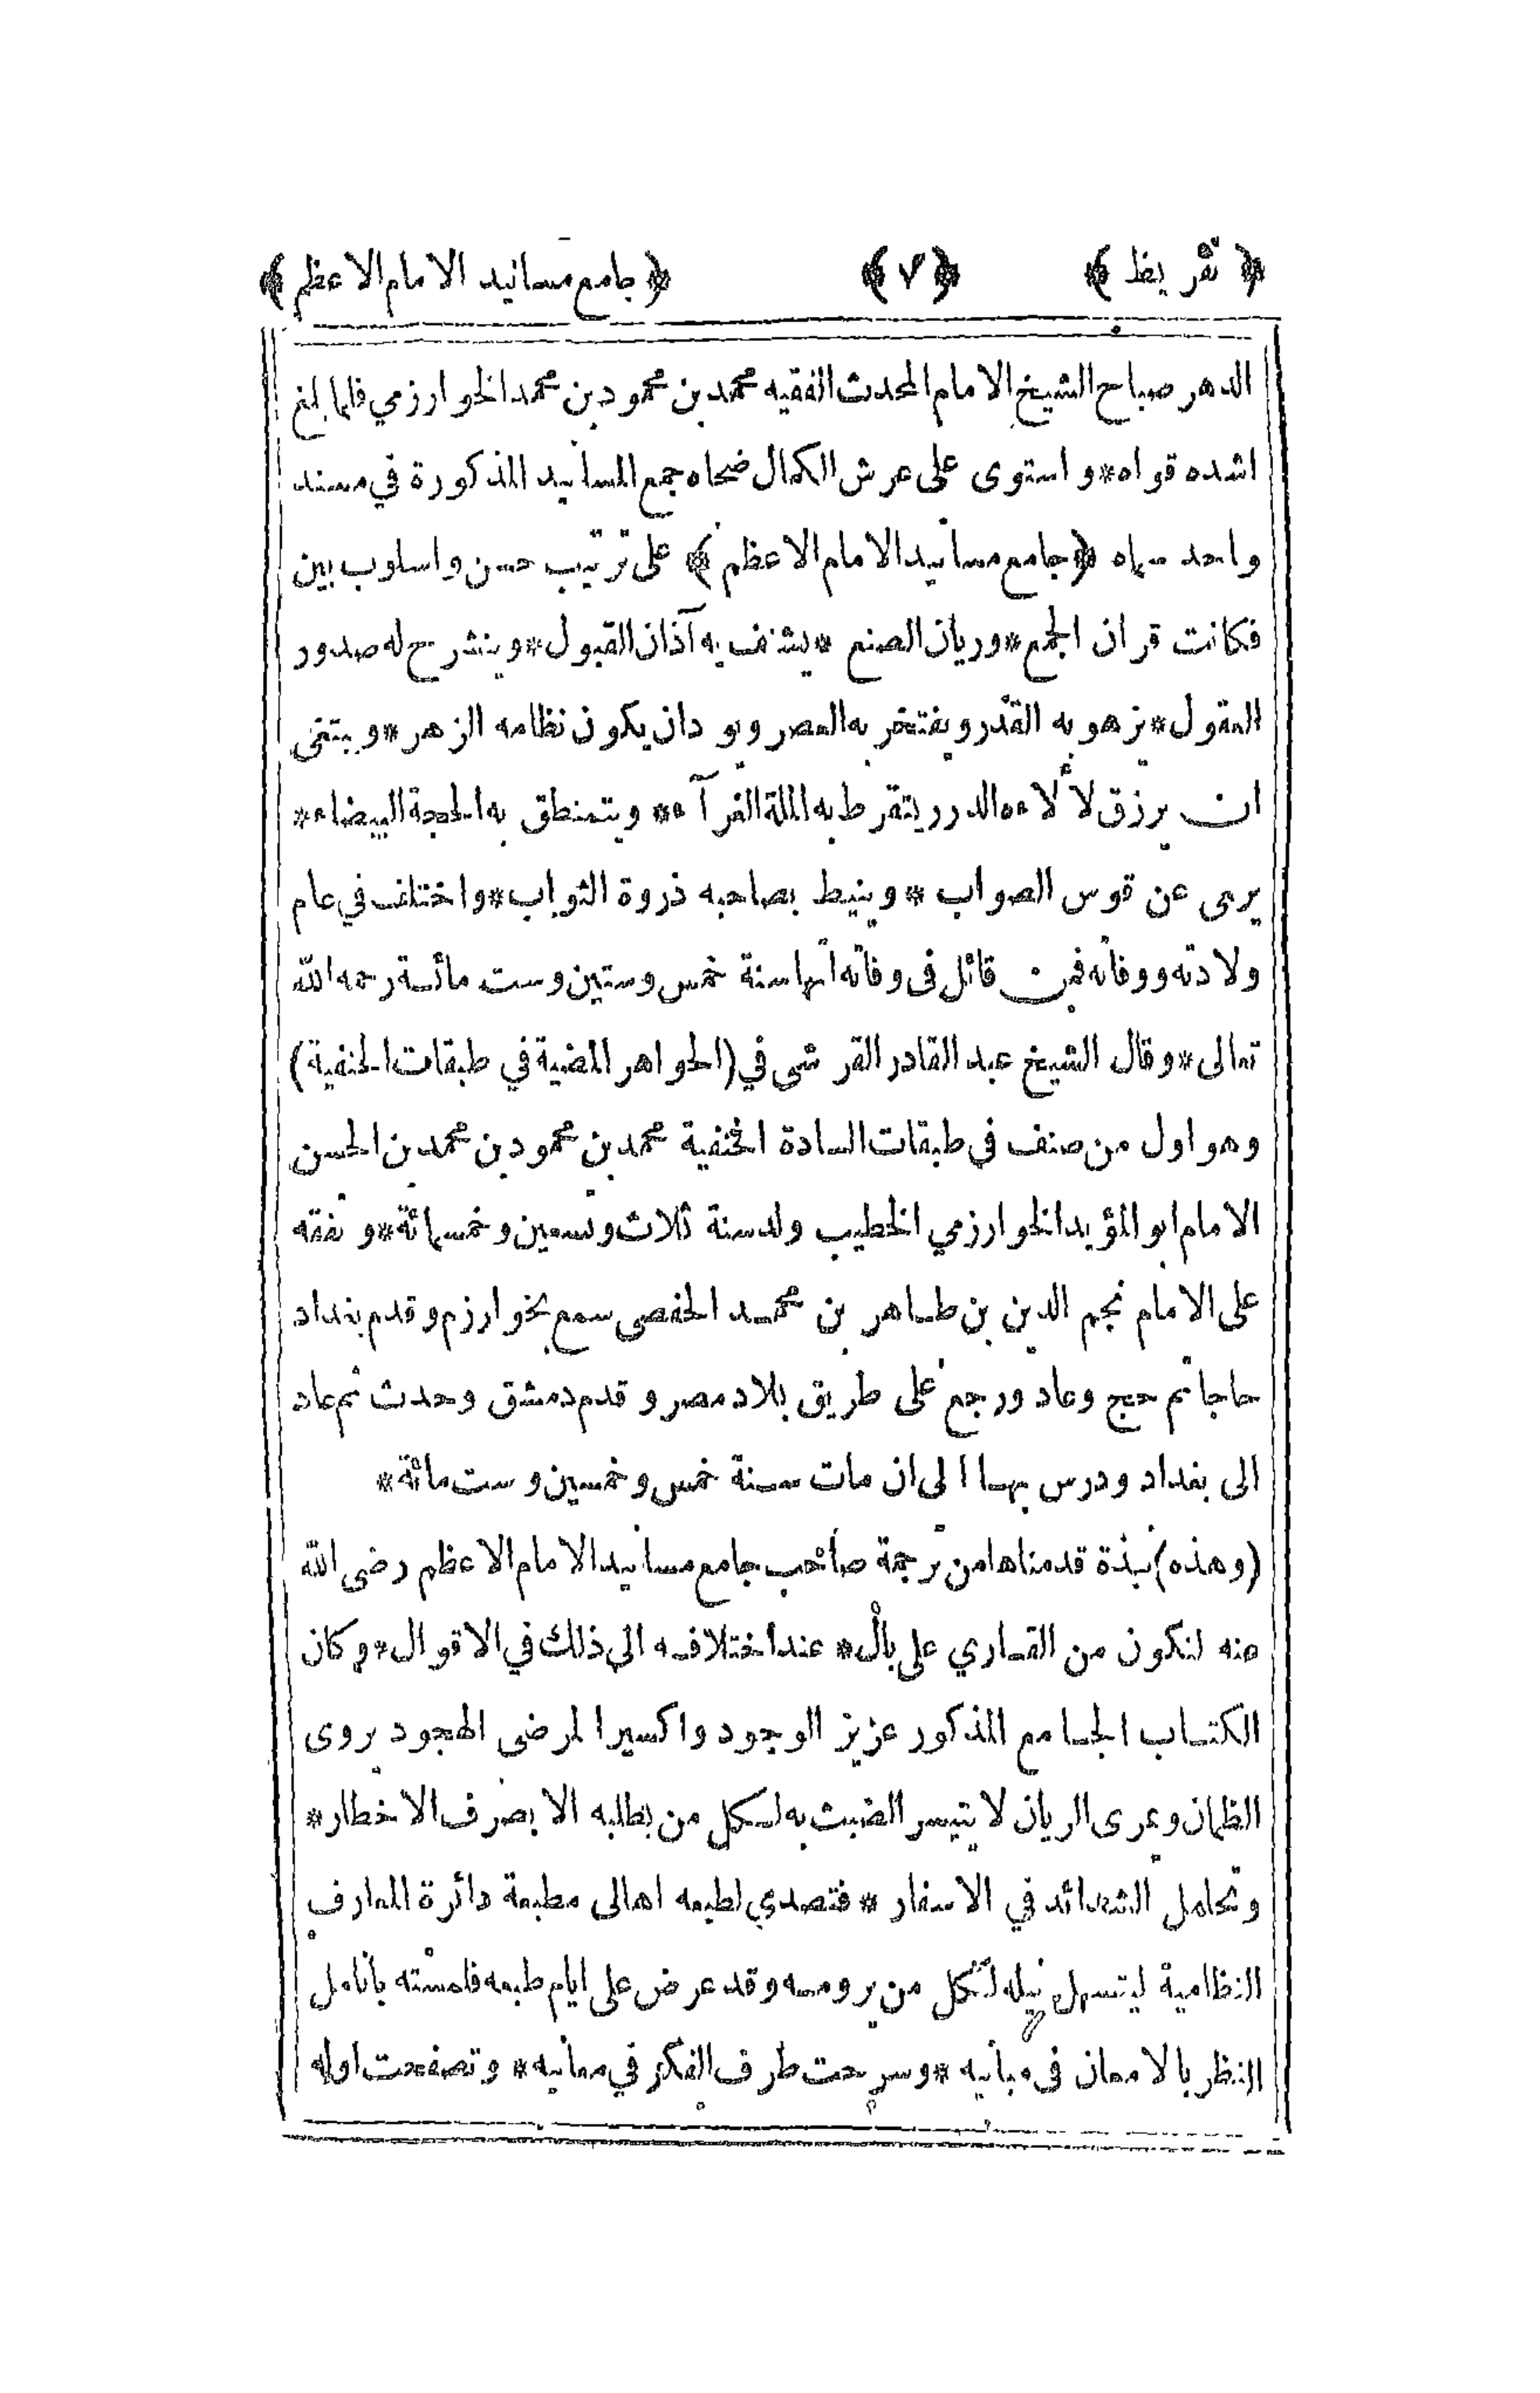 ﴿ تقريظ ﴾ ﴿٧﴾ ﴿ جامع مسانيد الامام الاعظم ﴾
الدهر صباح الشيخ الامام المحدث الفقيه محمد بن محمود بن محمد الخوارزمي فلما بلغ
اشده قواه * و استوى على عرش الكمال ضحاه جمع المسانيد المذكورة في مسند
واحد سماه ﴿ جامع مسانيد الامام الاعظم ﴾ على ترتيب حسن و اسلوب بين
فكانت قران الجمع * وريان الصنع * يشنف به آذان القبول * وينشرح له صدور
العقول * يزهو به القدر ويفتخر به العصر ويود ان يكون نظامه الزهر * ويبتغى
ان يرزق لألاءه الدرر يتقرط به الملة الغرآء * ويتمنطق به الحجة البيضاء *
يرمى عن قوس الصواب * وينيط بصاحبه ذروة الثواب * واختلف في عام
ولادته ووفاته فمن قائل فى وفاته انها سنة خمس وستين وست مائة رحمه الله
تعالى * وقال الشيخ عبد القادر القرشى في (الجواهر المضية في طبقات الحنفية)
وهو اول من صنف في طبقات السادة الحنفية محمد بن محمود بن محمد بن الحسن
الامام ابو المؤيد الخوارزمي الخطيب ولد سنة ثلاث وتسعين وخمسمائة * وتفقه
على الامام نجم الدين بن طاهر بن محمد الحفصى سمع بخوارزم وقدم بغداد
حاجا ثم حج وعاد ورجع على طريق بلاد مصر وقدم دمشق وحدث ثم عاد
الى بغداد ودرس بها الى ان مات سنة خمس وخمسين وست مائة *
(وهذه) نبذة قدمناها من ترجمة صاحب جامع مسانيد الامام الاعظم رضى الله
عنه لتكون من القاري على بال * عند اختلافه الى ذلك في الاقوال * وكان
الكتاب الجامع المذكور عزيز الوجود واكسيرا لمرضى الهجود يروى
الظمان ويمرى الريان لا يتيسر الضبث به لكل من يطلبه الا بصرف الاخطار *
وتحامل الشدائد في الاسفار * فتصدى لطبعه اهالى مطبعة دائرة المعارف
النظامية ليتسهل نيله لكل من يرومه وقد عرض على ايام طبعه فلمسته بانامل
النظر بالامعان فى مبانيه * وسرحت طرف الفكر في معانيه * وتصفحت اوله